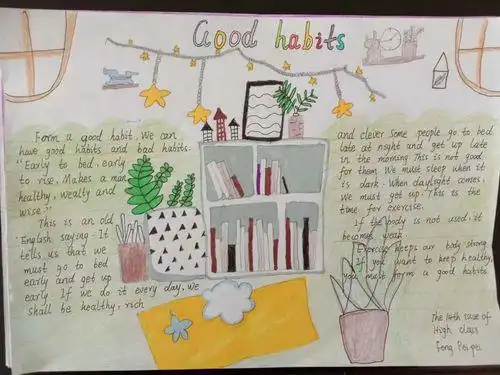 Good habits
Form a good habit. We can
have good habits and bad habits.
"Early to bed, early
to rise. Makes a man
healthy, wealty and
wise."
This is an old
English saying. It
tells us that we
must go to bed
early and get up
early. If we do it every day, we
shall be healthy, rich
and clever Some people go to bed
late at night and get up late
in the morning. This is not good
for them. We must sleep when it
is dark. When daylight comes,
We must get up. This is the
time for exercise.
If the body is not used, it
becomes weak.
Exercise keeps our body strong.
If you want to keep healthy,
you must form a good habits
The 14th issue of
High class
Feng Peipei